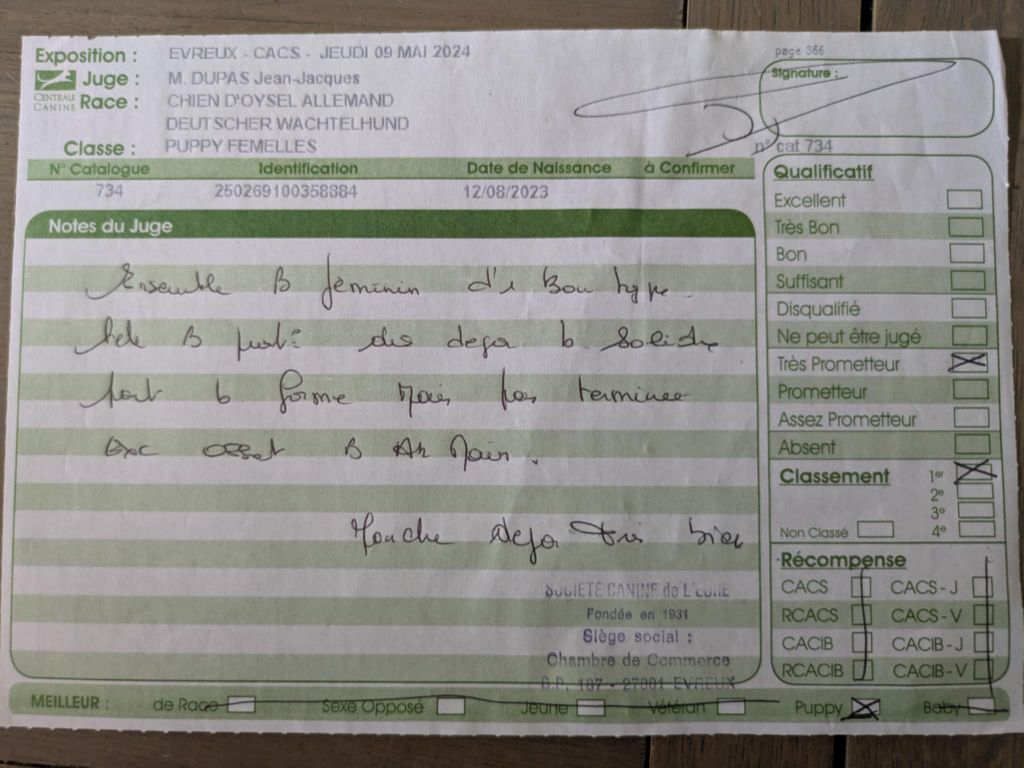 Exposition : EVREUX - CACS - JEUDI 09 MAI 2024
page 366
CENTRALE CANINE
Juge : M. DUPAS Jean-Jacques
Signature :
Race : CHIEN D'OYSEL ALLEMAND
DEUTSCHER WACHTELHUND
Classe : PUPPY FEMELLES
n° cat 734
N° Catalogue Identification Date de Naissance à Confirmer
734 250269100358884 12/08/2023
Notes du Juge
Ensemble B féminin d'1 Bon type.
tete B dos deja b. Solide
b forme Mais pas terminee
Exc B
Mouche deja très bien
SOCIETE CANINE de L'EURE
Fondée en 1931
Siège social :
Chambre de Commerce
B.P. 187 - 27001 EVREUX
Qualificatif
Excellent
Très Bon
Bon
Suffisant
Disqualifié
Ne peut être jugé
Très Prometteur
Prometteur
Assez Prometteur
Absent
Classement 1er
2e
3e
Non Classé 4e
Récompense
CACS CACS - J
RCACS CACS - V
CACIB CACIB - J
RCACIB CACIB - V
MEILLEUR : de Race Sexe Opposé Jeune Vétéran Puppy Baby